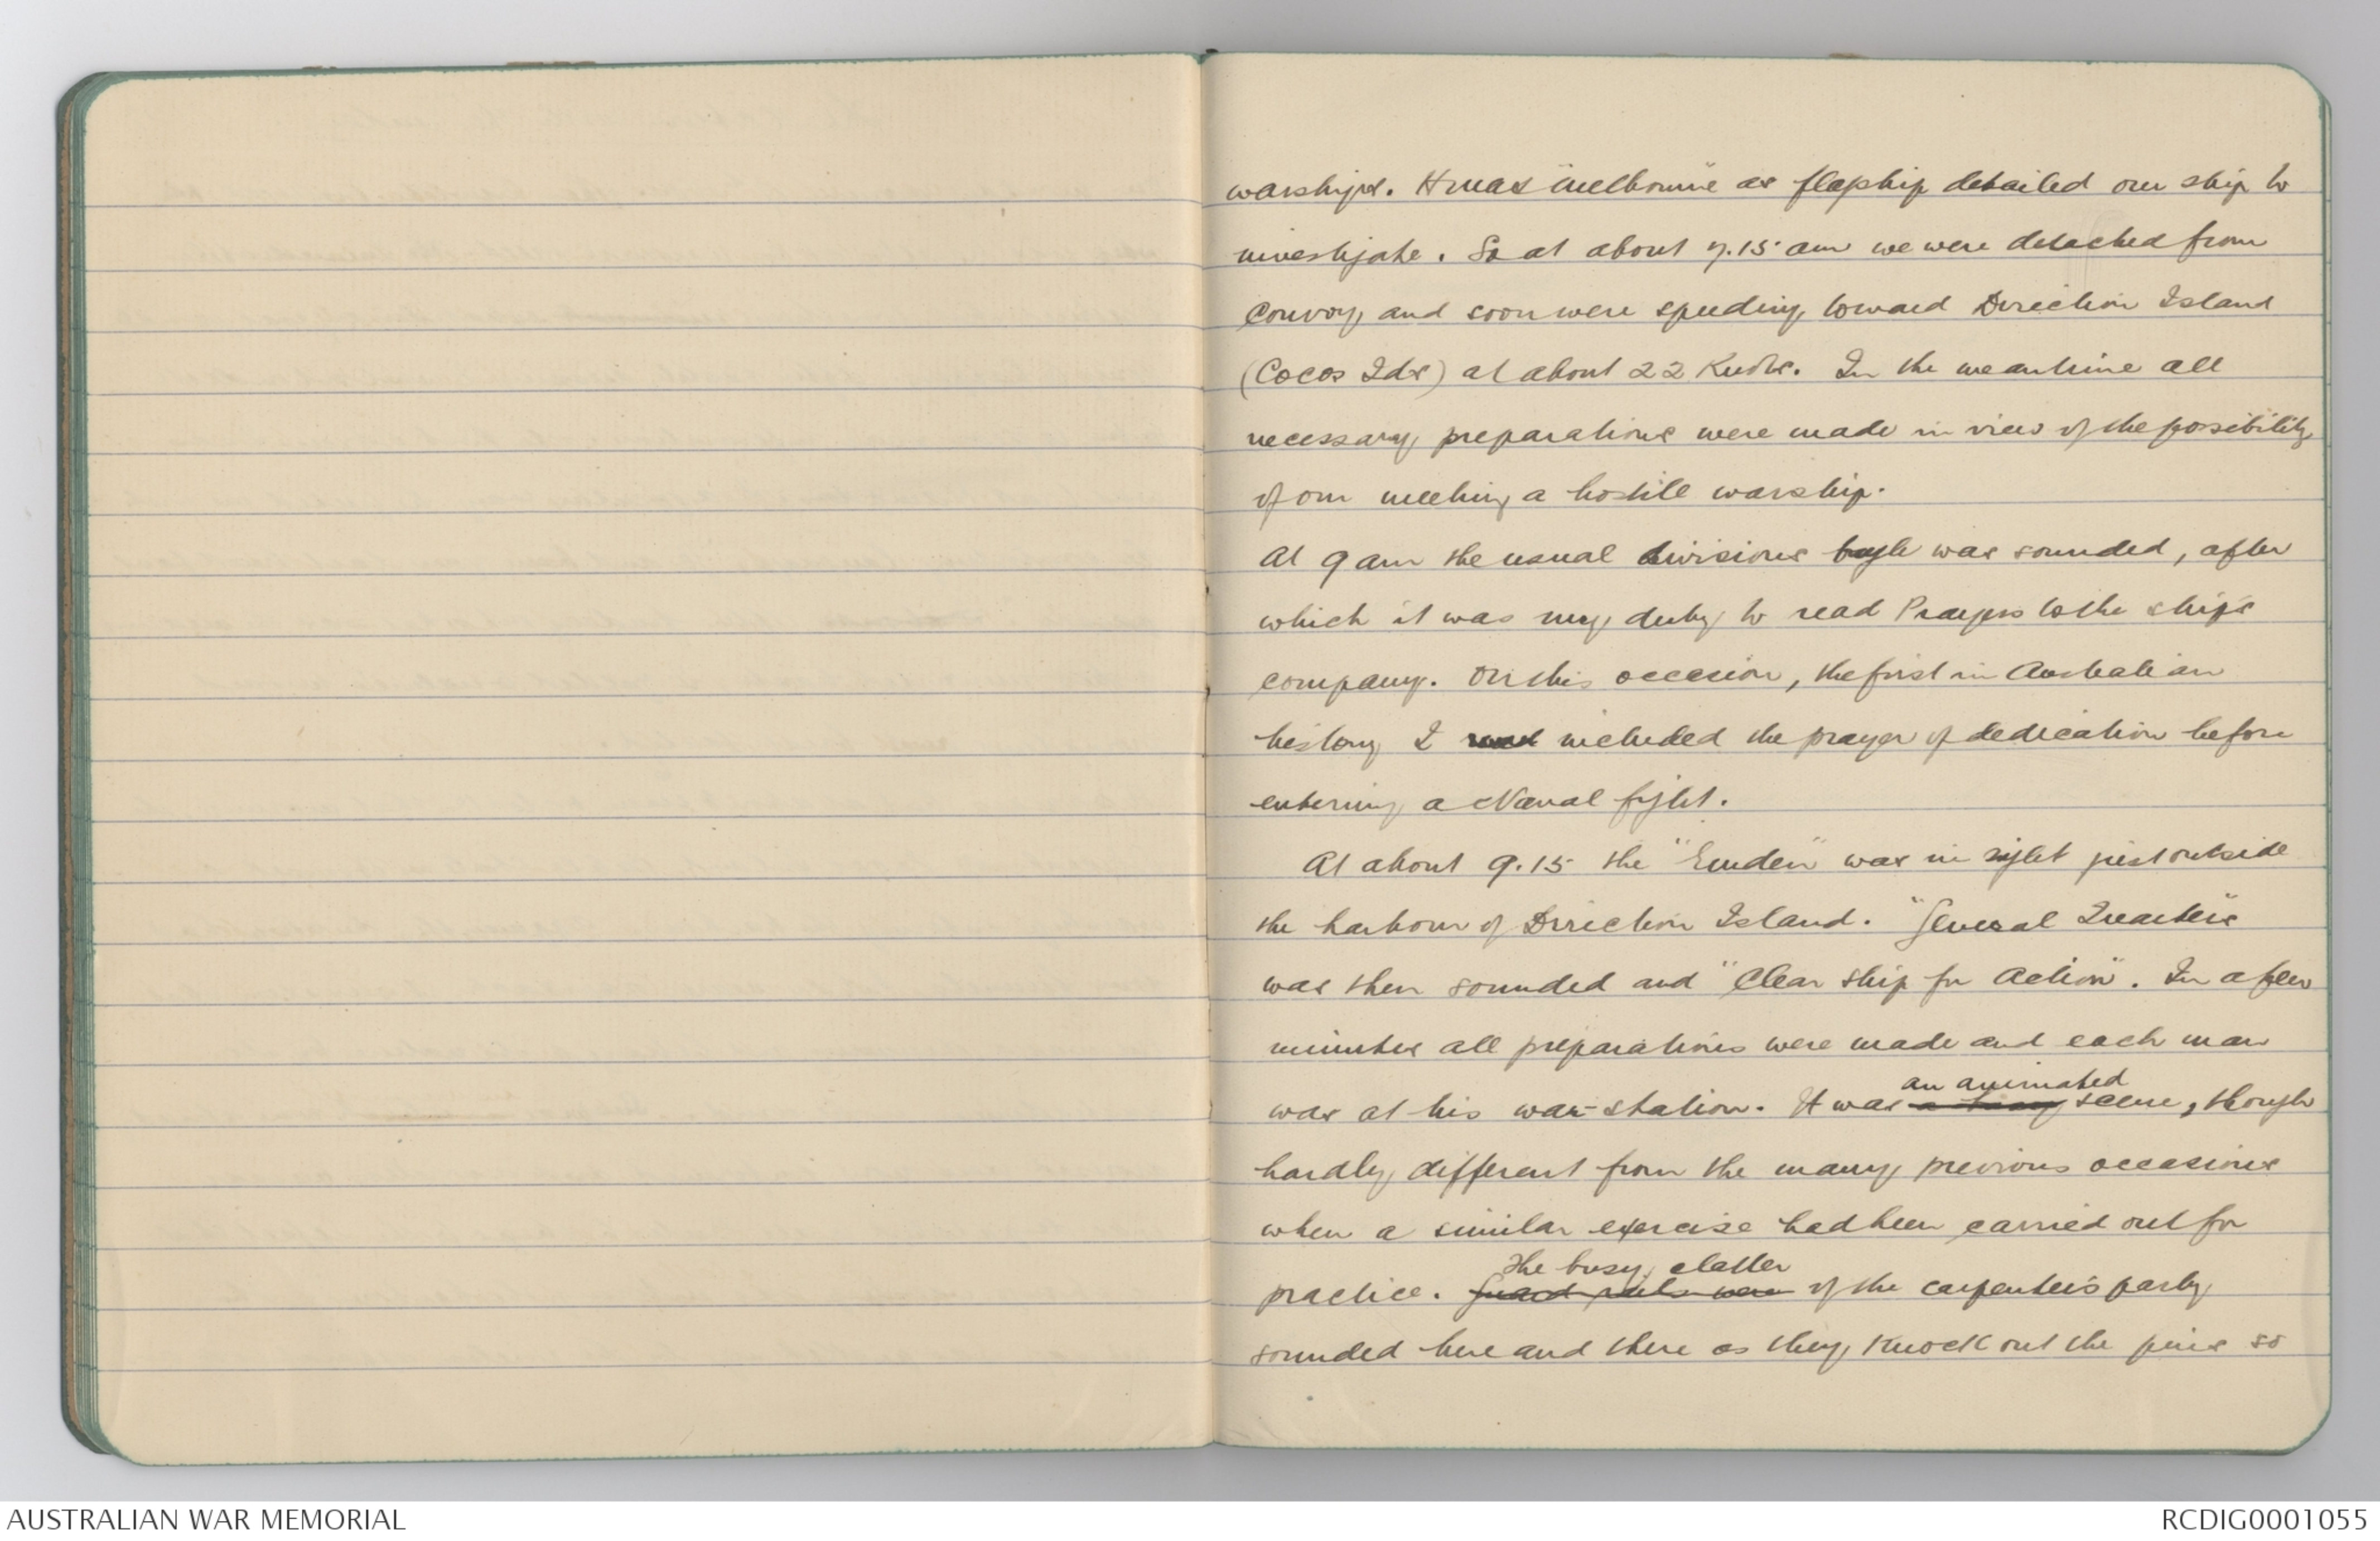 warships. HMAS "Melbourne" as flagship detailed our ship to
investigate. So at about 7.15 am we were detached from
Convoy, and soon were speeding toward Direction Island
(Cocos Ids) at about 22 Knots. In the meantime all
necessary preparations were made in view of the possibility
of our meeting a hostile warship.
At 9 am the usual divisions bugle was sounded, after
which it was my duty to read Prayers to the ship's
company. On this occasion, the first in Australian
history I read included the prayer of dedication before
entering a Naval fight.
At about 9.15 the "Emden" was in sight just outside
the harbour of Direction Island. "General Quarters"
was then sounded and "Clear ship for Action". In a few
minutes all preparations were made and each man
an animated
was at his war-station. It was a scene, though
hardly different from the many previous occasions
when a similar exercise had been carried out for
The busy clatter
practice. Guard rails were of the carpenter's party
sounded here and there as they knock out the pins so
AUSTRALIAN WAR MEMORIAL
RCDIG0001055